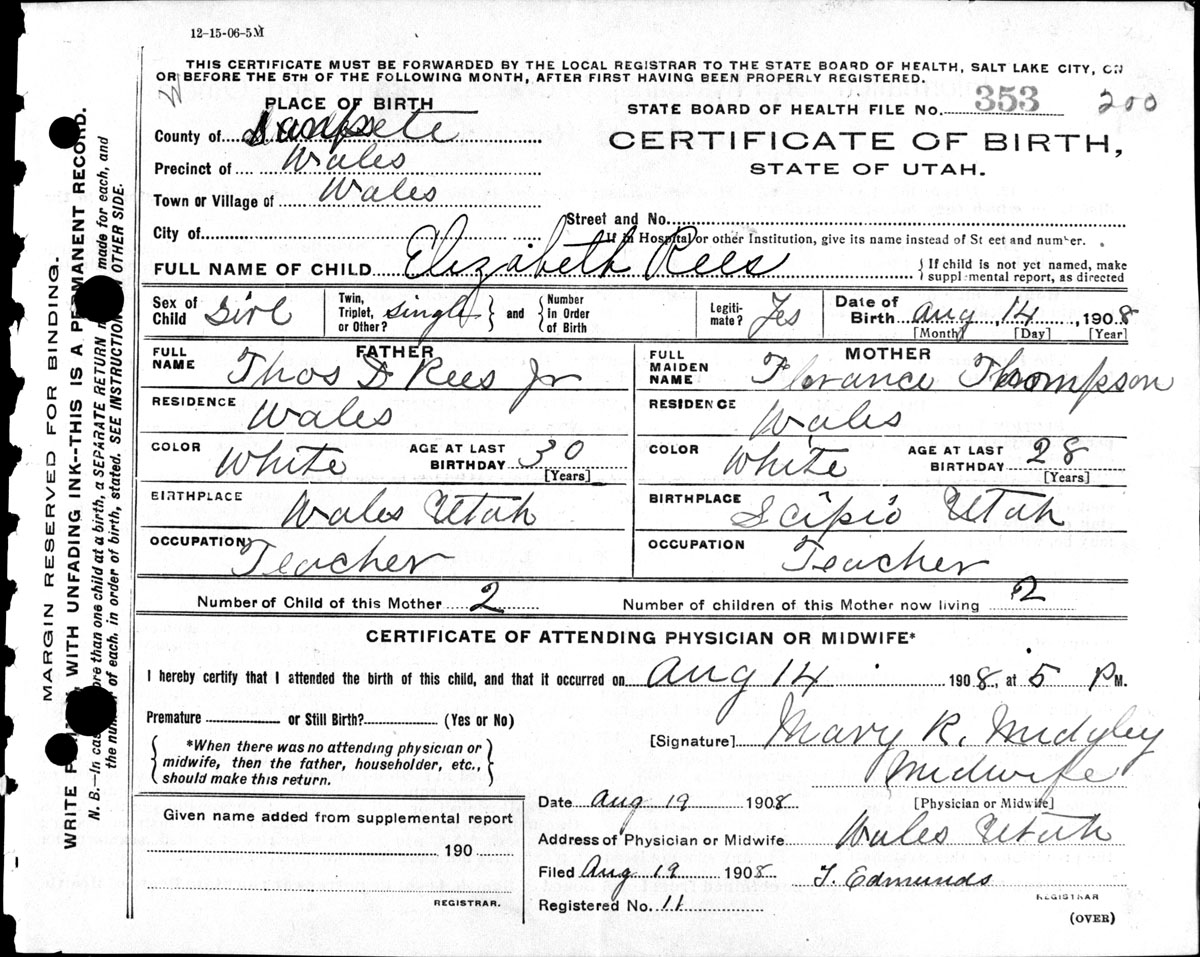 12-15-06-5M
THIS CERTIFICATE MUST BE FORWARDED BY THE LOCAL REGISTRAR TO THE STATE BOARD OF HEALTH, SALT LAKE CITY, ON
OR BEFORE THE 5TH OF THE FOLLOWING MONTH, AFTER FIRST HAVING BEEN PROPERLY REGISTERED.
PLACE OF BIRTH
STATE BOARD OF HEALTH FILE No. 353 200
County of Sanpete
CERTIFICATE OF BIRTH,
STATE OF UTAH.
Precinct of Wales
Town or Village of Wales
Street and No.
City of
If in Hospital or other Institution, give its name instead of St eet and number.
FULL NAME OF CHILD Elizabeth Rees
{ If child is not yet named, make
suppl mental report, as directed
Sex of Child Girl
Twin, Triplet, or Other? single } and { Number in Order of Birth
Legiti-mate? Yes
Date of Birth Aug 14, 1908
[Month] [Day] [Year]
FATHER
FULL NAME Thos D Rees Jr
RESIDENCE Wales
COLOR White AGE AT LAST BIRTHDAY 30 [Years]
BIRTHPLACE Wales Utah
OCCUPATION Teacher
MOTHER
FULL MAIDEN NAME Florance Thompson
RESIDENCE Wales
COLOR White AGE AT LAST BIRTHDAY 28 [Years]
BIRTHPLACE Scipio Utah
OCCUPATION Teacher
Number of Child of this Mother 2 Number of children of this Mother now living 2
CERTIFICATE OF ATTENDING PHYSICIAN OR MIDWIFE*
I hereby certify that I attended the birth of this child, and that it occurred on Aug 14 1908, at 5 P M.
Premature or Still Birth? (Yes or No)
{ *When there was no attending physician or
midwife, then the father, householder, etc.,
should make this return. }
[Signature] Mary R. Midgley
Midwife
[Physician or Midwife]
Date Aug 19 1908
Address of Physician or Midwife Wales Utah
Filed Aug 19 1908 T. Edmunds
REGISTRAR
Registered No. 11
(OVER)
Given name added from supplemental report
190
REGISTRAR.
MARGIN RESERVED FOR BINDING.
WRITE P WITH UNFADING INK--THIS IS A PERMANENT RECORD.
N. B.—In cas ore than one child at a birth, a SEPARATE RETURN m made for each, and
the nu of each, in order of birth, stated. SEE INSTRUCTION OTHER SIDE.